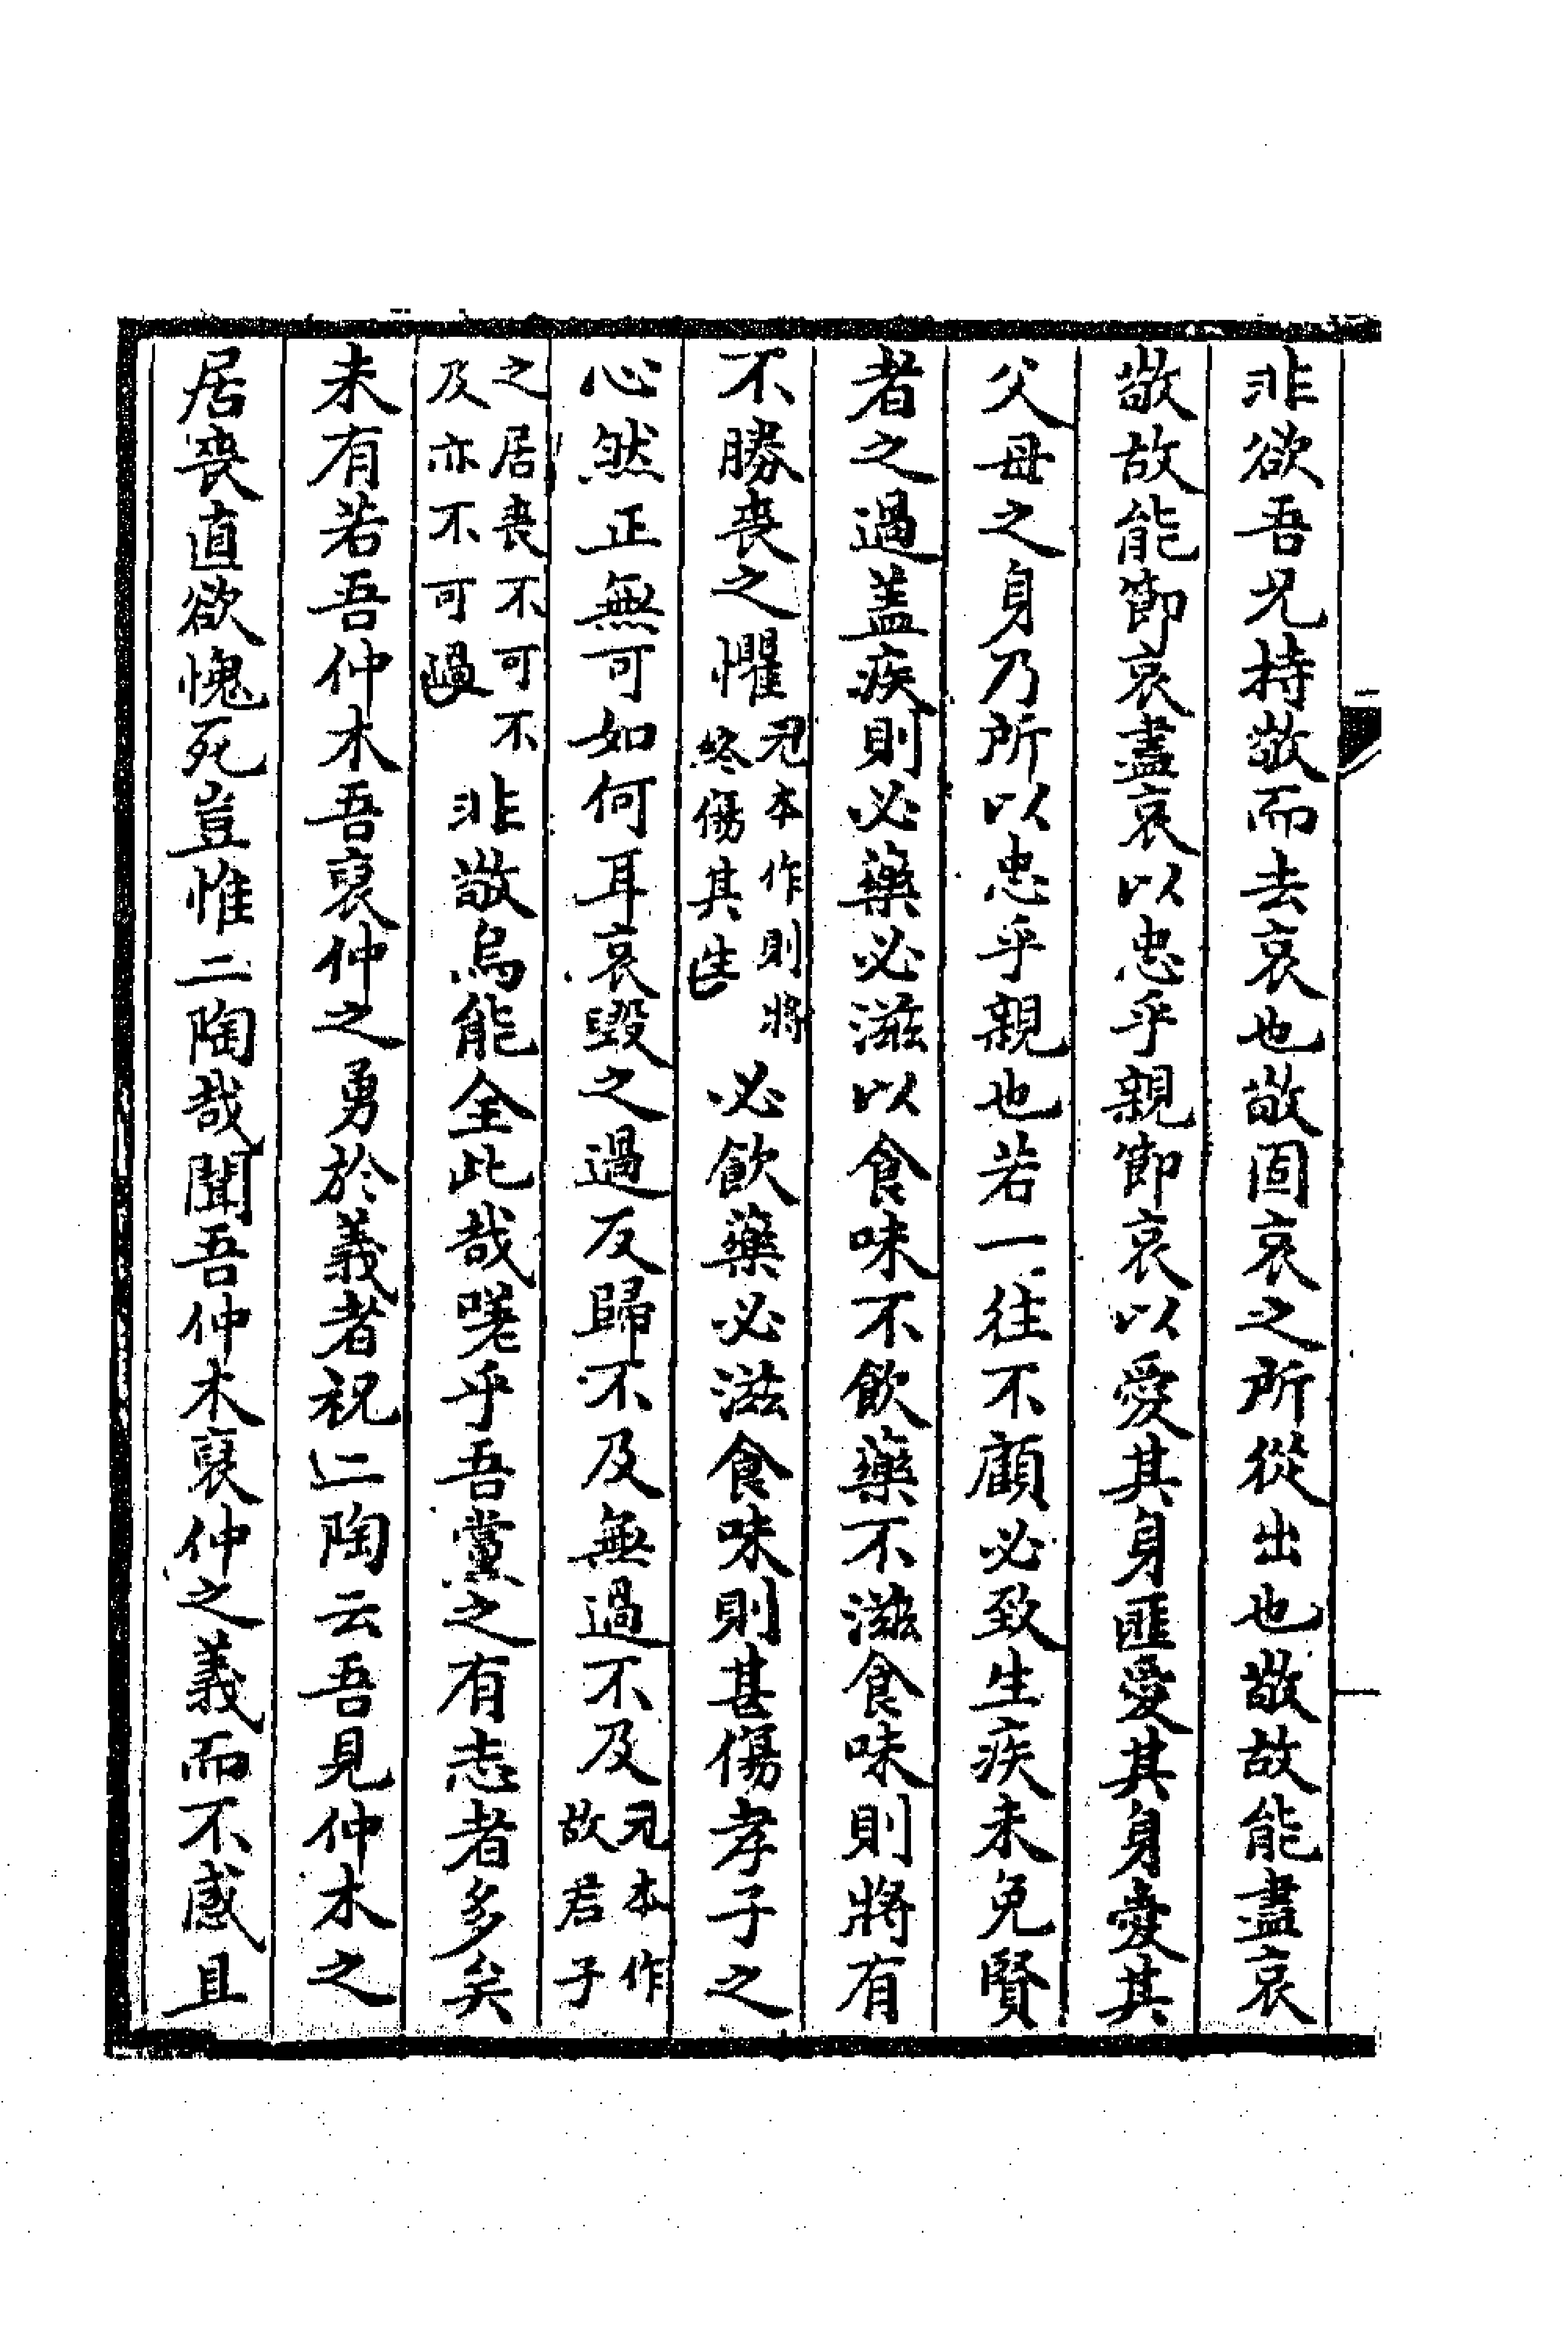 非欲吾兄持敬而去哀也敬固哀之所從出也敬故能盡哀
敬故能節哀盡哀以忠乎親節哀以愛其身匪愛其身愛其
父母之身乃所以忠乎親也若一往不顧必致生疾未免賢
者之過蓋疾則必藥必滋以食味不飲藥不滋食味則將有
不勝喪之懼刄本作則將終傷其生必飲藥必滋食味則甚傷孝子之
心然正無可如何耳哀毀之過反歸不及無過不及刄本作故君子
之居喪不可不及亦不可過非敬烏能全此哉嗟乎吾黨之有志者多矣
未有若吾仲木吾裒仲之勇於義者祝二陶云吾見仲木之
居喪直欲愧死豈惟二陶哉聞吾仲木裒仲之義而不感且